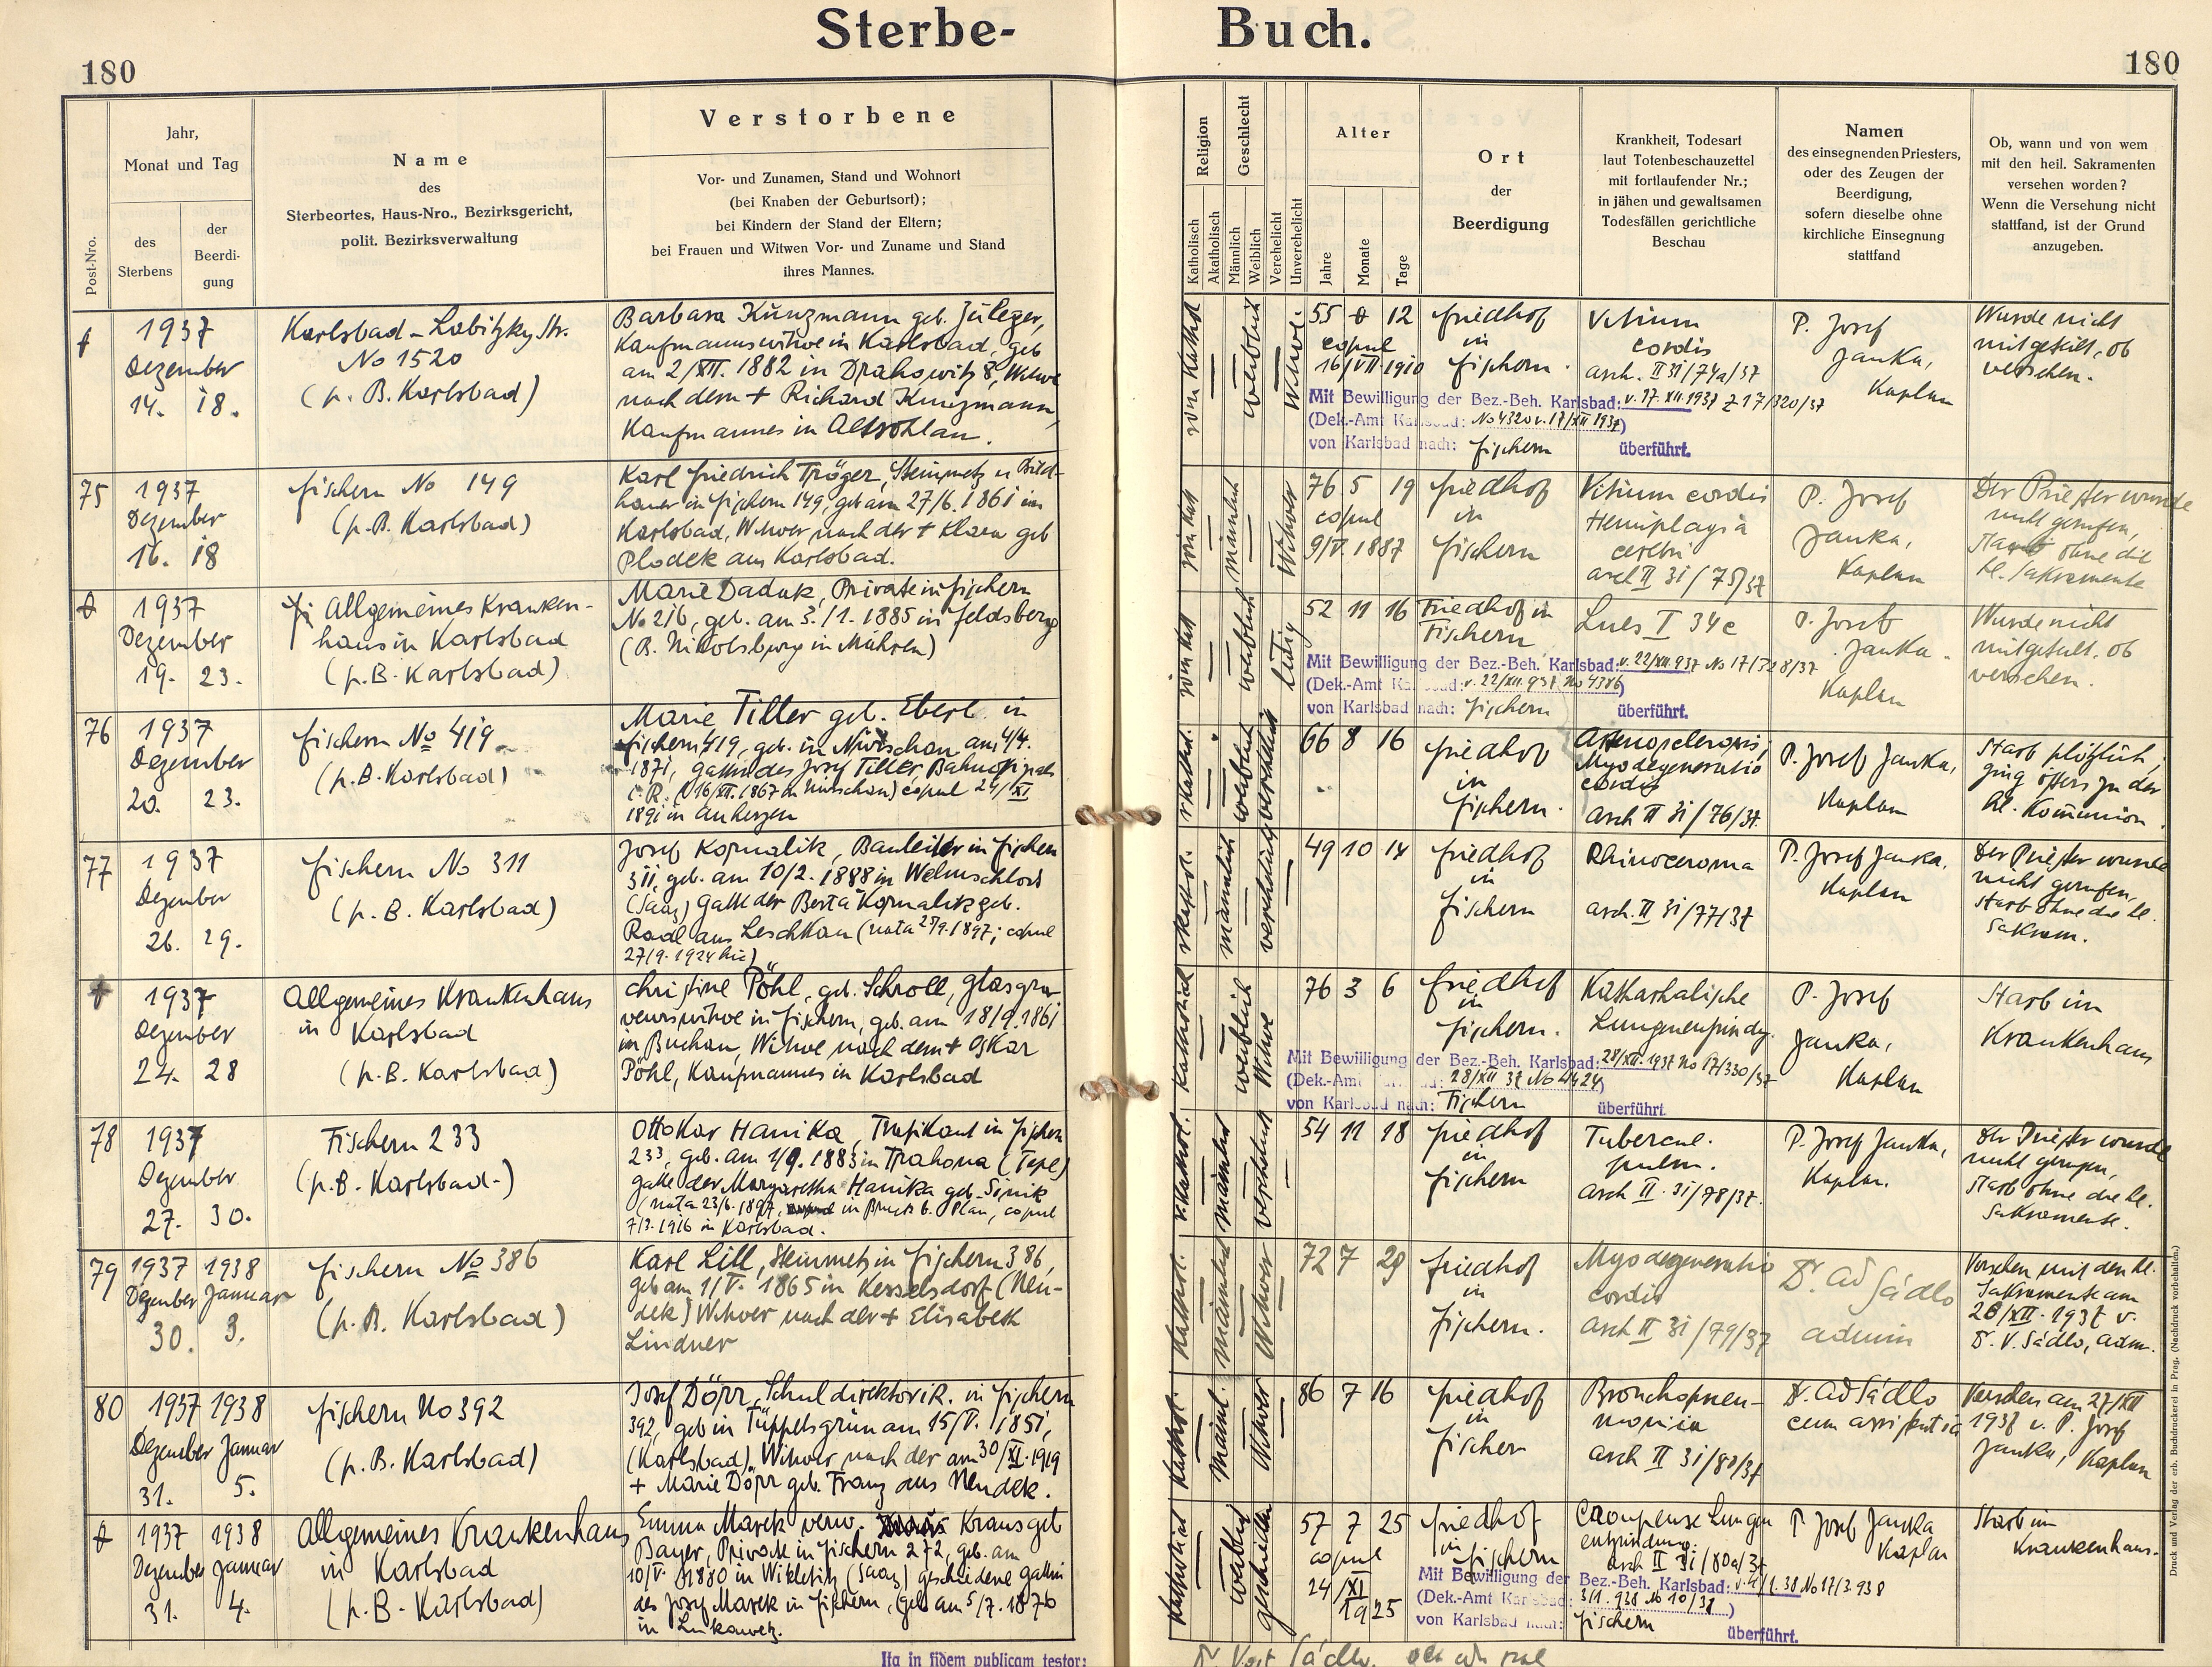 Sterbe- Buch.
180
180
Post-Nro.
Jahr,
Monat und Tag
des
Sterbens
der
Beerdi-
gung
Name
des
Sterbeortes, Haus-Nro., Bezirksgericht,
polit. Bezirksverwaltung
Verstorbene
Vor- und Zunamen, Stand und Wohnort
(bei Knaben der Geburtsort);
bei Kindern der Stand der Eltern;
bei Frauen und Witwen Vor- und Zuname und Stand
ihres Mannes.
Religion
Katholisch
Akatholisch
Geschlecht
Männlich
Weiblich
Verehelicht
Unverehelicht
Alter
Jahre
Monate
Tage
Ort
der
Beerdigung
Krankheit, Todesart
laut Totenbeschauzettel
mit fortlaufender Nr.;
in jähen und gewaltsamen
Todesfällen gerichtliche
Beschau
Namen
des einsegnenden Priesters,
oder des Zeugen der
Beerdigung,
sofern dieselbe ohne
kirchliche Einsegnung
stattfand
Ob, wann und von wem
mit den heil. Sakramenten
versehen worden?
Wenn die Versehung nicht
stattfand, ist der Grund
anzugeben.
1937
Dezember
14. 18.
Karlsbad - Labitzky Str.
No 1520
(p. B. Karlsbad)
Barbara Kunzmann geb. Juleger,
Kaufmannswitwe in Karlsbad, geb
am 2/XII. 1882 in Drahowitz 8, Witwe
nach dem + Richard Kunzmann,
Kaufmannes in Altrohlau.
röm. kathol
weiblich
Witwe.
55 0 12
copul
16/VII 1910
Friedhof
in
Fischern.
Vitium
cordis
arch. II 31/74a/37
P. Josef
Janka,
Kaplan
Wurde nicht
mitgeteilt, ob
versehen.
Mit Bewilligung der Bez.-Beh. Karlsbad: v. 17. XII 1937 Z 17/320/37
(Dek.-Amt Karlsbad: No 4320 v. 17/XII 1937)
von Karlsbad nach: Fischern überführt.
75
1937
Dezember
16. 18
Fischern No 149
(p. B. Karlsbad)
Karl Friedrich Tröger, Steinmetz u Bild-
hauer in Fischern 149, geb am 27/6. 1861 in
Karlsbad, Witwer nach der + Klara geb
Plodek aus Karlsbad.
röm kath
männlich
Witwer
76 5 19
copul
9/V. 1887
Friedhof
in
Fischern
Vitium cordis
Hemiplagia
cerebri
arch II 31/75/37
P. Josef
Janka,
Kaplan
Der Priester wurde
nicht gerufen,
starb ohne die
hl. Sakramente
1937
Dezember
19. 23.
Allgemeines Kranken-
haus in Karlsbad
(p. B. Karlsbad)
Marie Daduk, Private in Fischern
No 216, geb. am 3./1. 1885 in Feldsberg
(B. Nikolsburg in Mähren)
röm kath
weiblich
ledig
52 11 16
Friedhof in
Fischern
Lues I 34c
P. Josef
Janka.
Kaplan
Wurde nicht
mitgeteilt. ob
versehen.
Mit Bewilligung der Bez.-Beh. Karlsbad: v. 22/XII. 937 No 17/328/37
(Dek.-Amt Karlsbad: v. 22/XII. 937 No 4386)
von Karlsbad nach: Fischern überführt.
76
1937
Dezember
20. 23.
Fischern No 419
(p. B. Karlsbad)
Marie Tilter geb. Eberl in
Fischern 419, geb. in Nürschan am 4/4.
1871, Gattin des Josef Tilter, Bahnoffizials
i. R. (16/XII. 1867 in Nürschan) copul 24/XI
1891 in Auherzen
weiblich
verehelicht
66 8 16
Friedhof
in
Fischern.
Arteriosclerosis,
Myodegeneratio
cordis
arch II 31/76/37.
P. Josef Janka,
Kaplan
Starb plötzlich,
ging öfters zu der
hl. Kommunion.
77
1937
Dezember
26. 29.
Fischern No 311
(p. B. Karlsbad)
Josef Kornalik, Bauleiter in Fischern
311, geb. am 10/2. 1888 in Welmschloss
(Saaz) Gatte der Berta Kornalik geb.
Radl aus Leschkau (nata 27/9. 1897; copul
27/9. 1924 hic)
männlich
verehelicht
49 10 14
Friedhof
in
Fischern
Rhinoceroma
arch. II 31/77/37
P. Josef Janka.
Kaplan
Der Priester wurde
nicht gerufen,
starb ohne die hl.
Sakram.
1937
Dezember
24. 28
Allgemeines Krankenhaus
in Karlsbad
(p. B. Karlsbad)
Christine Pöhl, geb. Schroll, Glasgra-
veurswitwe in Fischern, geb. am 18/9. 1861
in Buchau, Witwe nach dem + Oskar
Pöhl, Kaufmannes in Karlsbad
Katholisch
weiblich
Witwe
76 3 6
Friedhof
in
Fischern.
Katharhalische
Lungenentzündg.
P. Josef
Janka,
Kaplan
Starb im
Krankenhaus
Mit Bewilligung der Bez.-Beh. Karlsbad: 28/XII. 1937 No 17/330/37
(Dek.-Amt Karlsbad: 28/XII 37 No 4424)
von Karlsbad nach: Fischern überführt.
78
1937
Dezember
27. 30.
Fischern 233
(p. B. Karlsbad.)
Ottokar Hanika, Trafikant in Fischern
233, geb. am 1/9. 1883 in Trahona (Tepl)
Gatte der Margaretha Hanika geb. Simik
(nata 23/6. 1897, in Bruck b. Plan, copul
7/3. 1916 in Karlsbad.
r. kathol.
männlich
verehelicht
54 11 18
Friedhof
in
Fischern
Tubercul.
pulm.
arch II. 31/78/37.
P. Josef Janka,
Kaplan.
Der Priester wurde
nicht gerufen,
starb ohne die hl.
Sakramente.
79
1937 1938
Dezember Januar
30. 3.
Fischern No 386
(p. B. Karlsbad)
Karl Lill, Steinmetz in Fischern 386,
geb am 1/V. 1865 in Kesselsdorf (Neu-
dek) Witwer nach der + Elisabeth
Lindner
Kathol.
männlich
Witwer
72 7 29
Friedhof
in
Fischern.
Myodegeneratio
cordis
arch II 31/79/37
Dr. Ad Sádlo
admin
Versehen mit den hl.
Sakramente am
28/XII. 1937 v.
Dr. V. Sádlo, adm.
80
1937 1938
Dezember Januar
31. 5.
Fischern No 392
(p. B. Karlsbad)
Josef Dörr, Schuldirektor i R. in Fischern
392, geb in Tüppelsgrün am 15/V. 1851,
(Karlsbad), Witwer nach der am 30/XI. 1919
+ Marie Dörr geb. Franz aus Neudek.
Kathol.
männl.
Witwer
86 7 16
Friedhof
in
Fischer
Bronchopneu-
monia
arch II 31/80/37
Dr. Ad Sádlo
cum assistentia
Versehen am 27/XII
1937 v. P. Josef
Janka, Kaplan
1937 1938
Dezember Januar
31. 4.
Allgemeines Krankenhaus
in Karlsbad
(p. B. Karlsbad)
Emma Marek verw. Kraus geb
Bayer, Private in Fischern 272, geb. am
10/V. 1880 in Wikletitz (Saaz) geschiedene Gattin
des Josef Marek in Fischern, (geb am 5/7. 1876
in Lukawetz.
Katholisch
weiblich
geschieden
57 7 25
copul
24/XI
1925
Friedhof
in
Fischern
Croupense Lungen
entzündung.
arch II 31/80a/37
P Josef Janka
Kaplan
Starb im
Krankenhaus.
Mit Bewilligung der Bez.-Beh. Karlsbad: v. 4/1. 38 No 17/3.938
(Dek.-Amt Karlsbad: 3/1. 938 No 10/38)
von Karlsbad nach: Fischern überführt.
Ita in fidem publicam testor:
Druck und Verlag der erb. Buchdruckerei in Prag. (Nachdruck vorbehalten.)